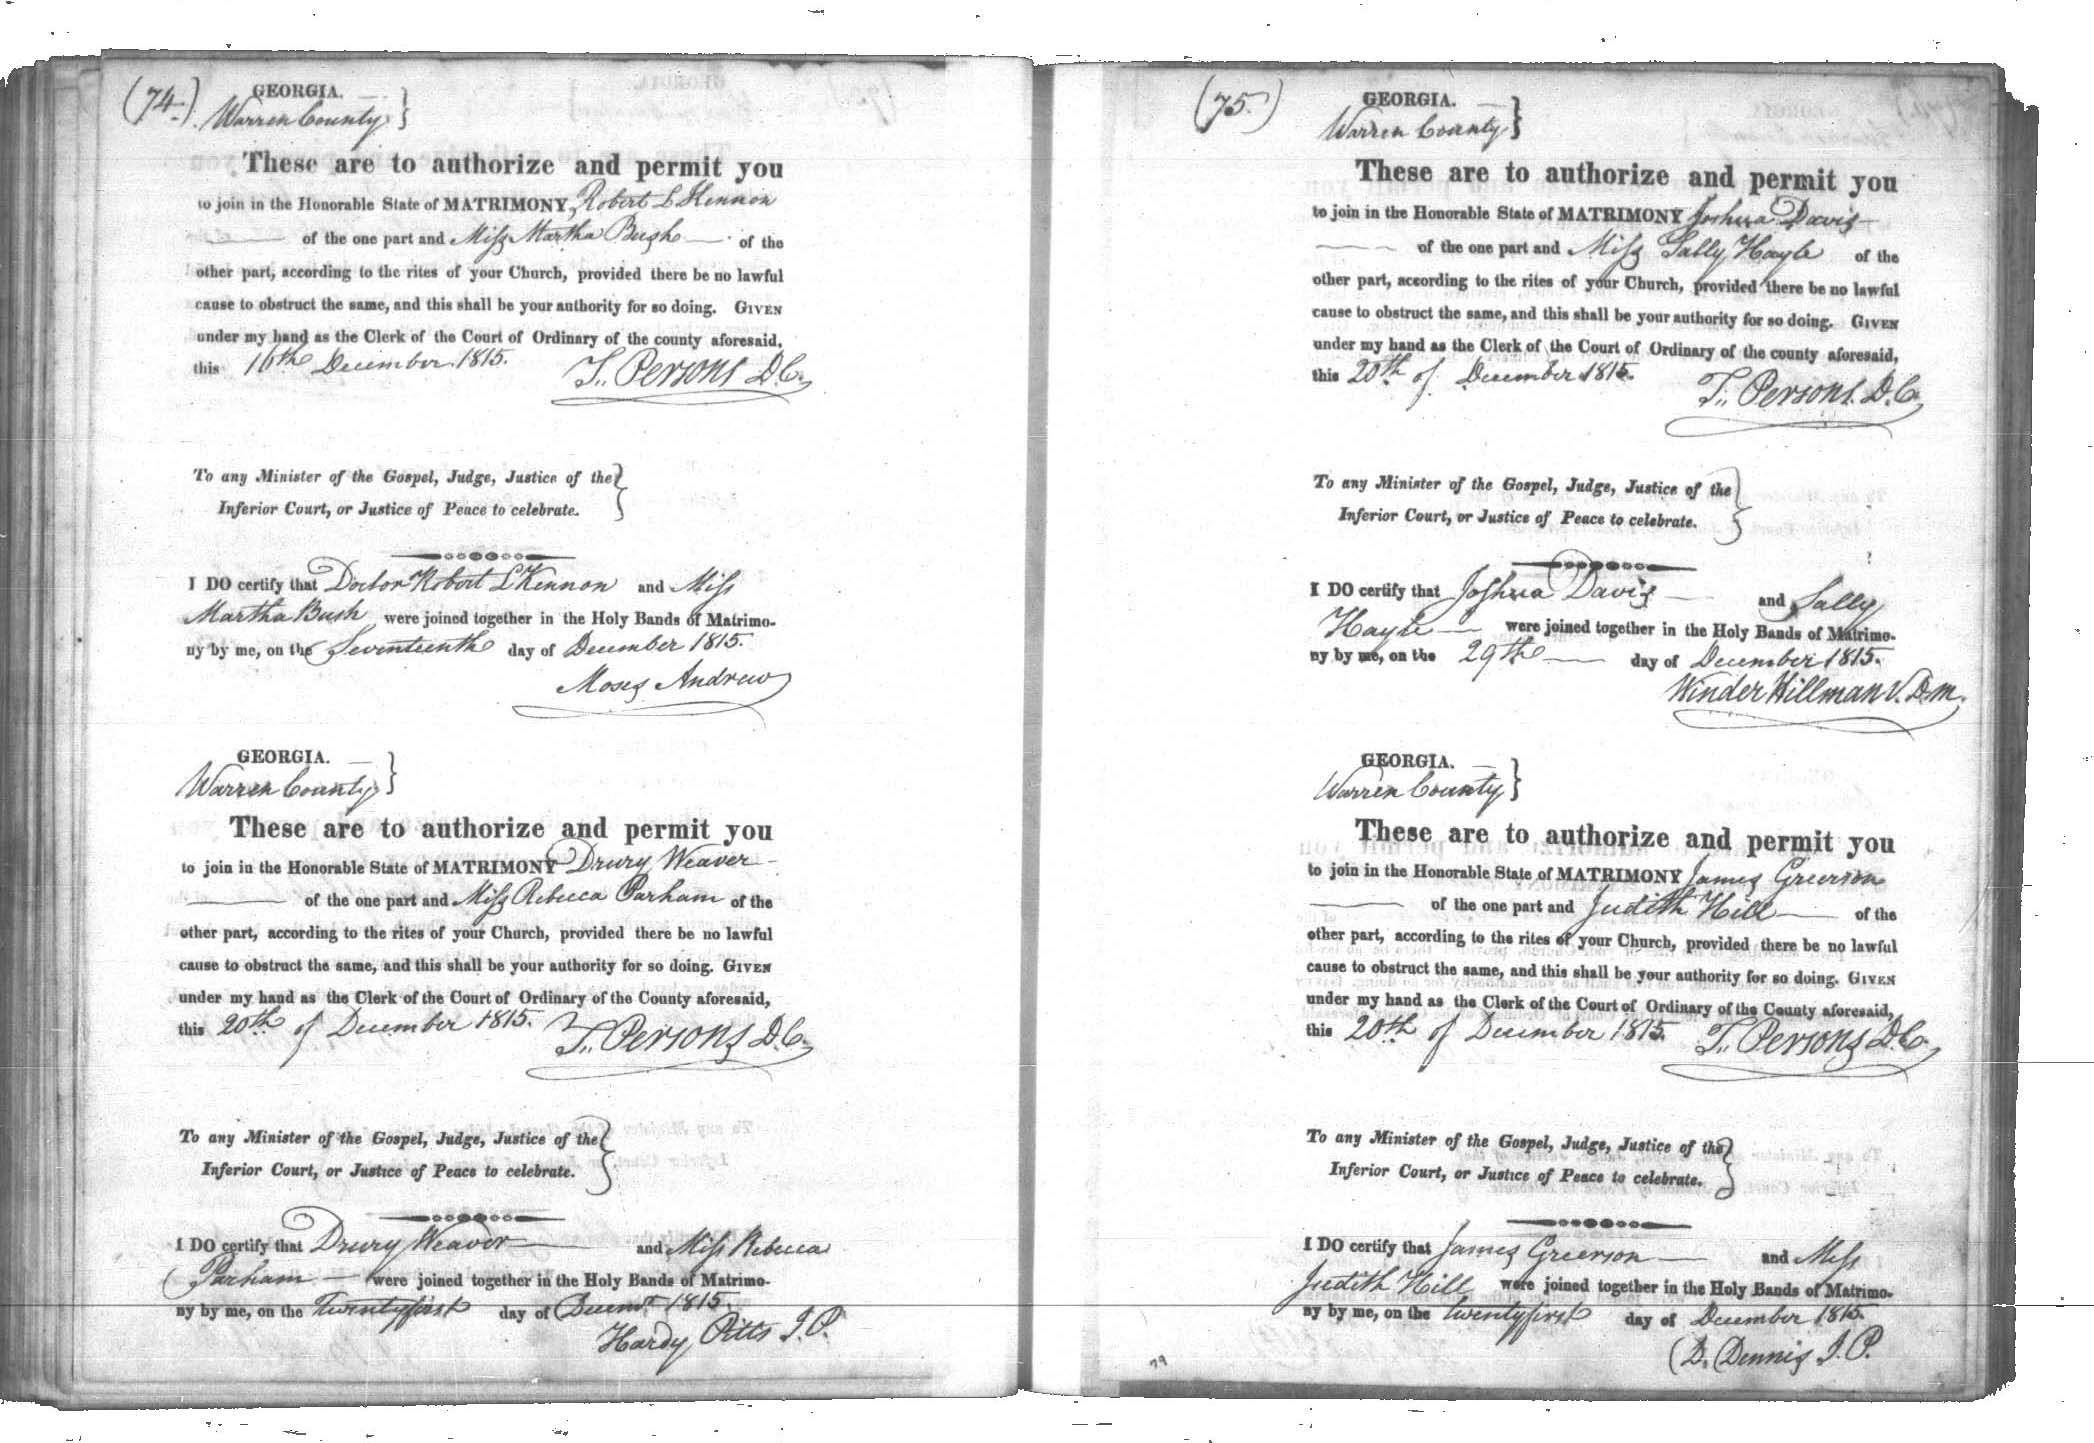 (74.) GEORGIA.
Warren County }
These are to authorize and permit you
to join in the Honorable State of MATRIMONY, Robert L Kennon
of the one part and Miss Martha Bush of the
other part, according to the rites of your Church, provided there be no lawful
cause to obstruct the same, and this shall be your authority for so doing. GIVEN
under my hand as the Clerk of the Court of Ordinary of the county aforesaid,
this 16th December 1815. T. Persons D.C.
To any Minister of the Gospel, Judge, Justice of the }
Inferior Court, or Justice of Peace to celebrate.
I DO certify that Doctor Robert L Kennon and Miss
Martha Bush were joined together in the Holy Bands of Matrimo-
ny by me, on the Seventeenth day of December 1815.
Moses Andrew
GEORGIA.
Warren County }
These are to authorize and permit you
to join in the Honorable State of MATRIMONY Drury Weaver
of the one part and Miss Rebecca Parham of the
other part, according to the rites of your Church, provided there be no lawful
cause to obstruct the same, and this shall be your authority for so doing. GIVEN
under my hand as the Clerk of the Court of Ordinary of the County aforesaid,
this 20th of December 1815. T. Persons D.C.
To any Minister of the Gospel, Judge, Justice of the }
Inferior Court, or Justice of Peace to celebrate.
I DO certify that Drury Weaver and Miss Rebecca
Parham were joined together in the Holy Bands of Matrimo-
ny by me, on the twentyfirst day of Decemr 1815.
Hardy Pitts J.P.
(75.) GEORGIA.
Warren County }
These are to authorize and permit you
to join in the Honorable State of MATRIMONY Joshua Davis
of the one part and Miss Sally Hayle of the
other part, according to the rites of your Church, provided there be no lawful
cause to obstruct the same, and this shall be your authority for so doing. GIVEN
under my hand as the Clerk of the Court of Ordinary of the county aforesaid,
this 20th of December 1815. T. Persons. D.C.
To any Minister of the Gospel, Judge, Justice of the }
Inferior Court, or Justice of Peace to celebrate.
I DO certify that Joshua Davis and Sally
Hayle were joined together in the Holy Bands of Matrimo-
ny by me, on the 29th day of December 1815.
Winder Hillman V.D.M.
GEORGIA.
Warren County }
These are to authorize and permit you
to join in the Honorable State of MATRIMONY James Greerson
of the one part and Judith Hill of the
other part, according to the rites of your Church, provided there be no lawful
cause to obstruct the same, and this shall be your authority for so doing. GIVEN
under my hand as the Clerk of the Court of Ordinary of the County aforesaid,
this 20th of December 1815. T. Persons D.C.
To any Minister of the Gospel, Judge, Justice of the }
Inferior Court, or Justice of Peace to celebrate.
I DO certify that James Greerson and Miss
Judith Hill were joined together in the Holy Bands of Matrimo-
ny by me, on the twentyfirst day of December 1815.
D. Dennis J.P.
79